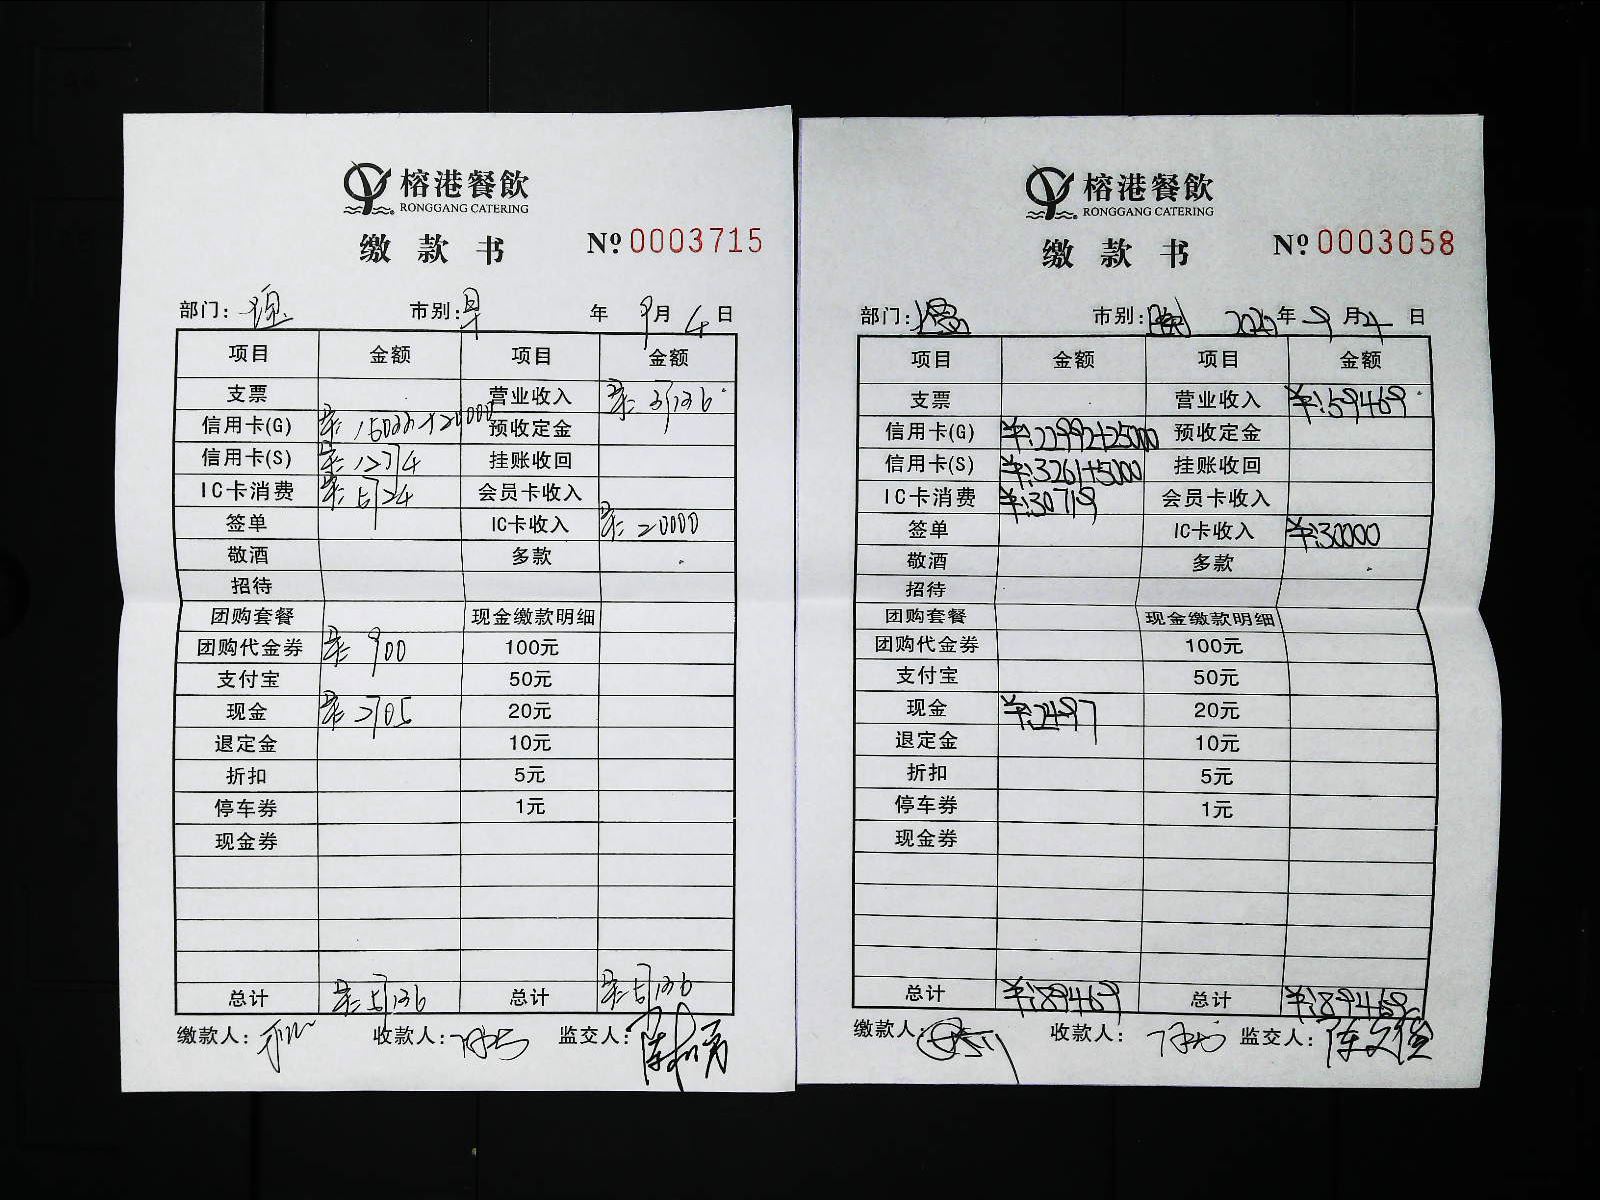 榕港餐飲
RONGGANG CATERING
缴款书 Nº 0003715
部门: 市别:早 年 9月 4 日
项目 金额 项目 金额
支票 营业收入 ¥:37136
信用卡(G) ¥:15033+20000 预收定金
信用卡(S) ¥:12774 挂账收回
IC卡消费 ¥:5724 会员卡收入
签单 IC卡收入 ¥:20000
敬酒 多款
招待
团购套餐 现金缴款明细
团购代金券 ¥:900 100元
支付宝 50元
现金 ¥:2705 20元
退定金 10元
折扣 5元
停车券 1元
现金券
总计 ¥:57136 总计 ¥:57136
缴款人: 收款人: 监交人:
榕港餐飲
RONGGANG CATERING
缴款书 Nº 0003058
部门: 市别:晚 2020年 9月4 日
项目 金额 项目 金额
支票 营业收入 ¥:59469
信用卡(G) ¥:22992+25000 预收定金
信用卡(S) ¥:3261+5000 挂账收回
IC卡消费 ¥:30719 会员卡收入
签单 IC卡收入 ¥:30000
敬酒 多款
招待
团购套餐 现金缴款明细
团购代金券 100元
支付宝 50元
现金 ¥:2497 20元
退定金 10元
折扣 5元
停车券 1元
现金券
总计 ¥:89469 总计 ¥:89469
缴款人: 收款人: 监交人: